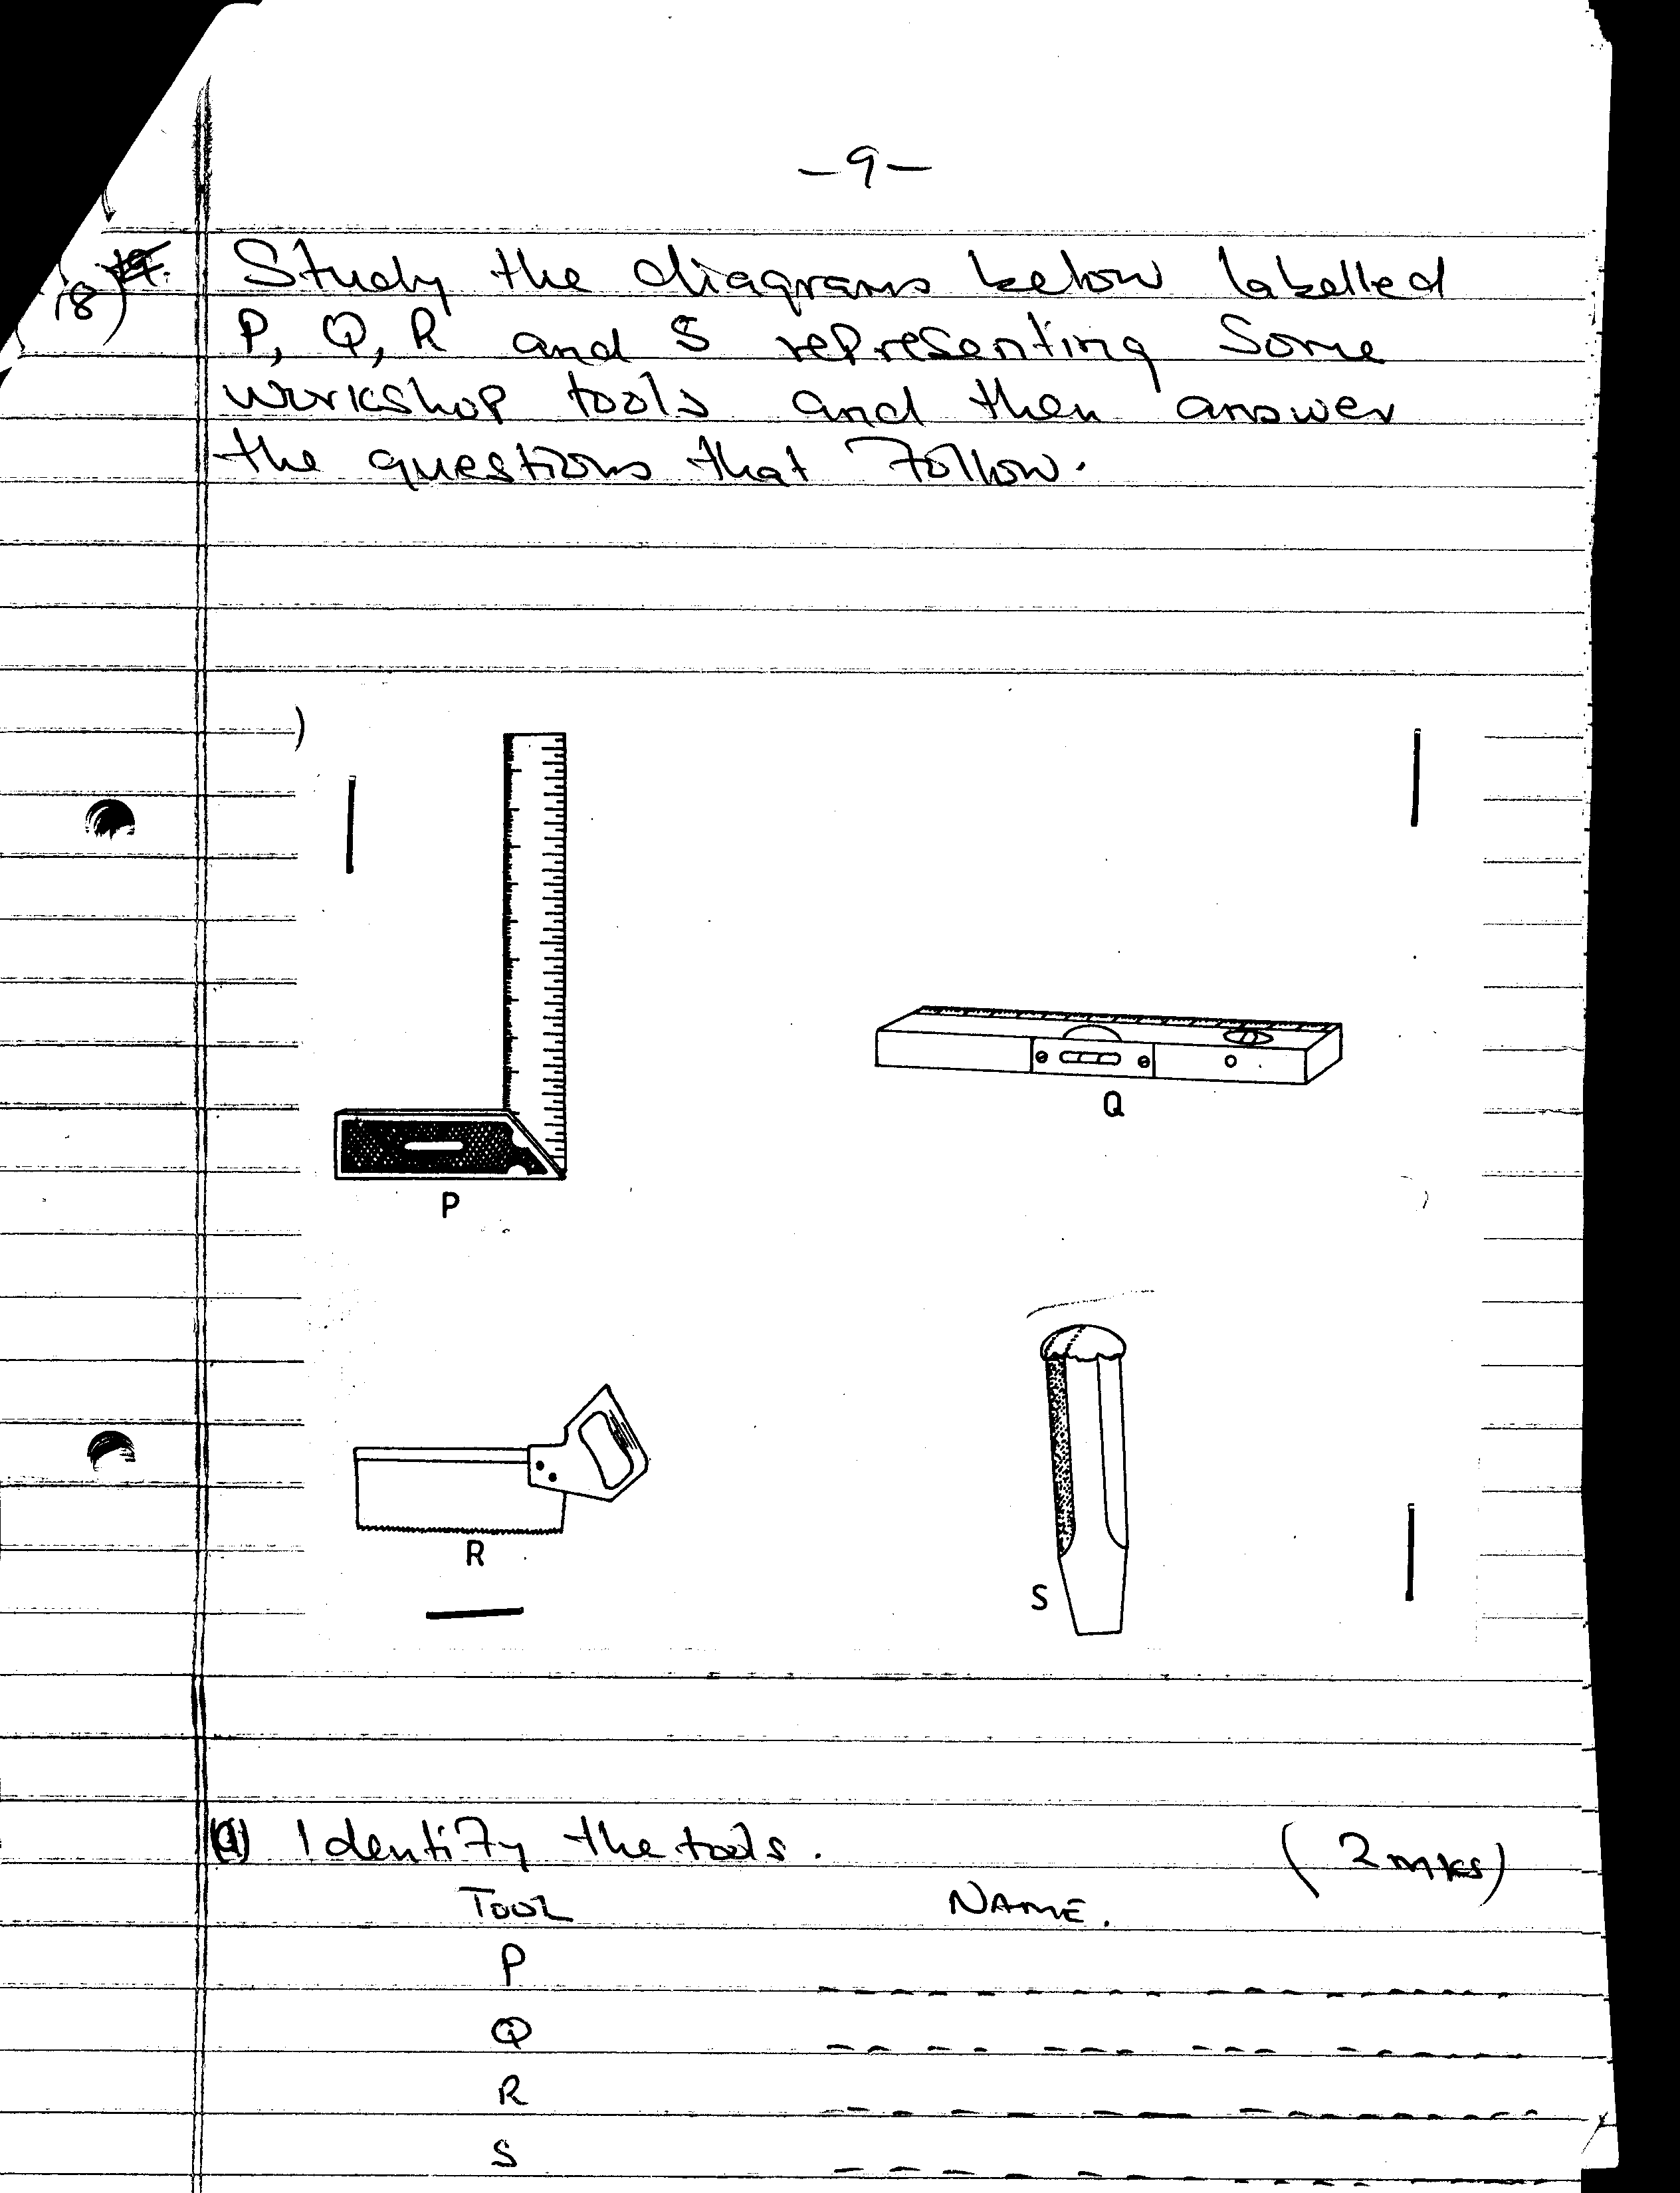 -9-
18) Study the diagrams below labelled
P, Q, R and S representing Some
workshop tools and then answer
the questions that Follow.
)
P
Q
R
S
(a) Identify the tools. (2mks)
TOOL NAME.
P
Q
R
S